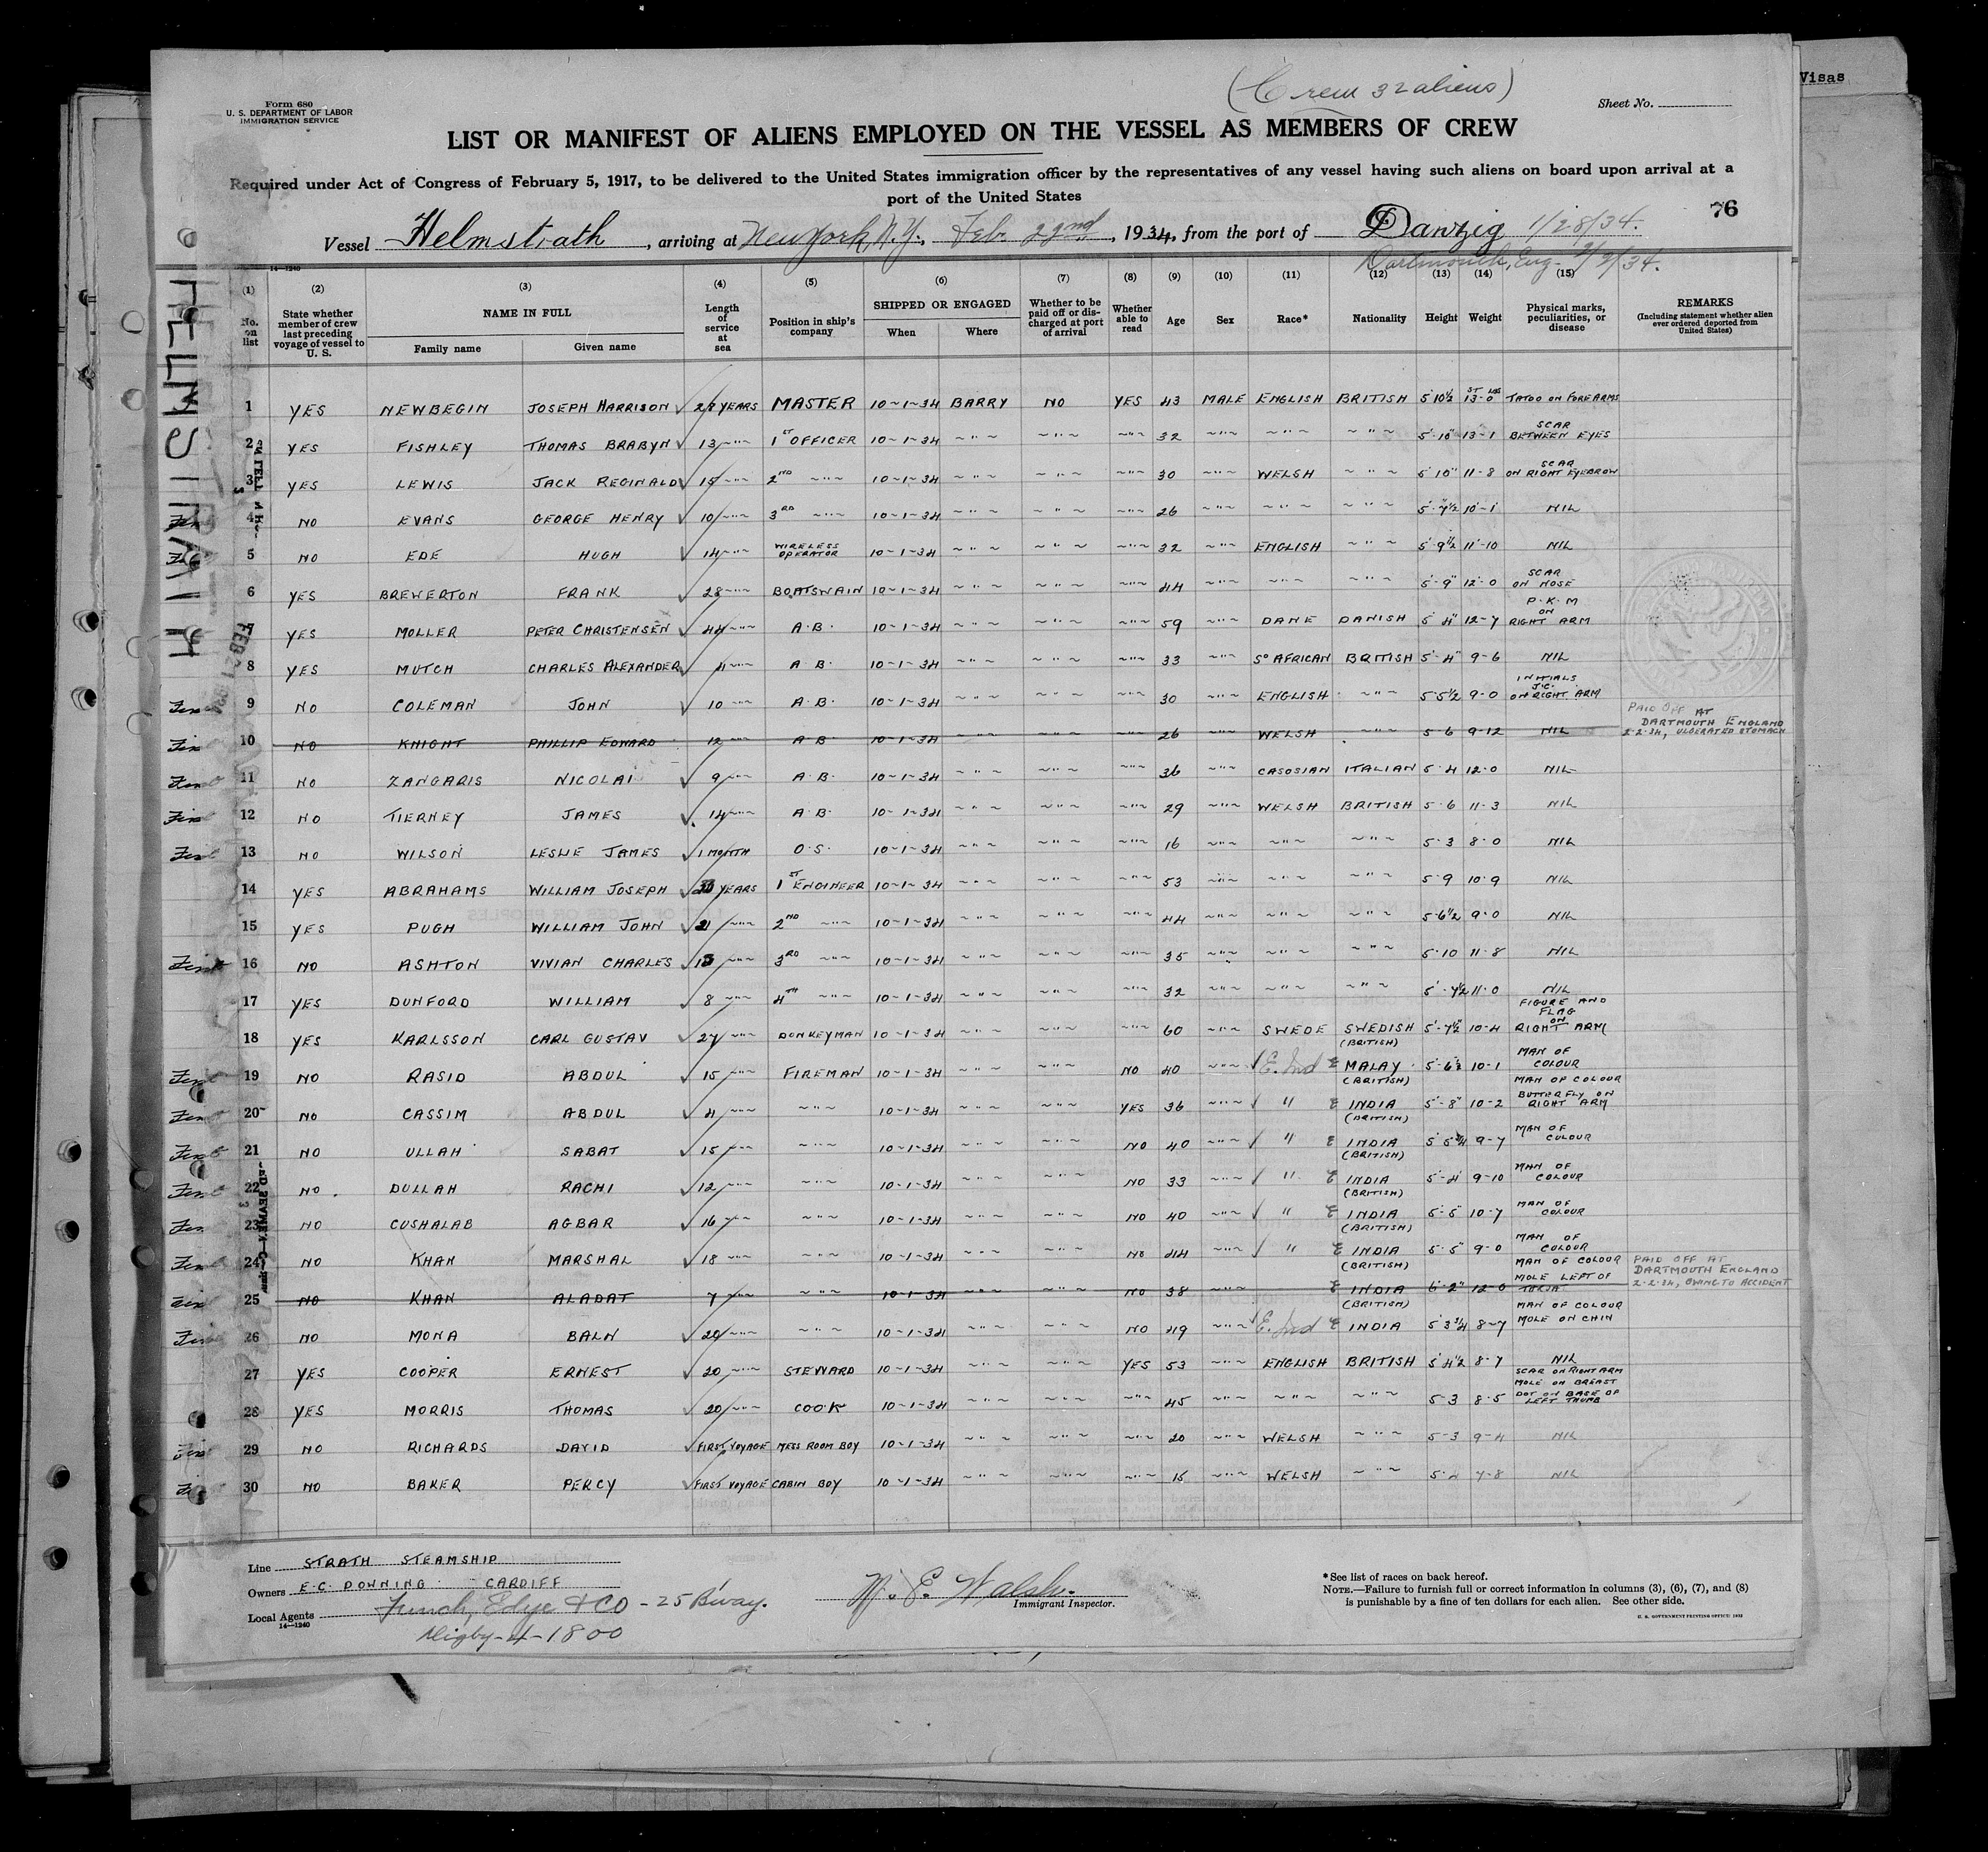 Visas
(Crew 32 aliens)
Form 680
U. S. DEPARTMENT OF LABOR
IMMIGRATION SERVICE
Sheet No.
LIST OR MANIFEST OF ALIENS EMPLOYED ON THE VESSEL AS MEMBERS OF CREW
Required under Act of Congress of February 5, 1917, to be delivered to the United States immigration officer by the representatives of any vessel having such aliens on board upon arrival at a
port of the United States
76
Vessel Helmstrath, arriving at New York N.Y., Feb. 22nd, 1934, from the port of Danzig 1/28/34.
Dartmouth, Eng. 2/2/34.
14—1240
HELMSTRATH
(1) No. on list (2) State whether member of crew last preceding voyage of vessel to U. S. (3) NAME IN FULL Family name Given name (4) Length of service at sea (5) Position in ship's company (6) SHIPPED OR ENGAGED When Where (7) Whether to be paid off or discharged at port of arrival (8) Whether able to read (9) Age (10) Sex (11) Race* (12) Nationality (13) Height (14) Weight (15) Physical marks, peculiarities, or disease REMARKS (Including statement whether alien ever ordered deported from United States)
1 YES NEWBEGIN JOSEPH HARRISON 28 YEARS MASTER 10-1-34 BARRY NO YES 43 MALE ENGLISH BRITISH 5 10½ ST LBS 13-0 TATOO ON FOREARMS
2 YES FISHLEY THOMAS BRABYN 13 ~"~ 1ST OFFICER 10-1-34 ~"~ ~"~ ~"~ 32 ~"~ ~"~ ~"~ 5'-10" 13-1 SCAR BETWEEN EYES
3 YES LEWIS JACK REGINALD 15 ~"~ 2ND ~"~ 10-1-34 ~"~ ~"~ ~"~ 30 ~"~ WELSH ~"~ 5'10" 11-8 SCAR ON RIGHT EYEBROW
4 NO EVANS GEORGE HENRY 10 ~"~ 3RD ~"~ 10-1-34 ~"~ ~"~ ~"~ 26 ~"~ ~"~ ~"~ 5'-7½ 10-1 NIL
5 NO EDE HUGH 14 ~"~ WIRELESS OPERATOR 10-1-34 ~"~ ~"~ ~"~ 32 ~"~ ENGLISH ~"~ 5'-9½ 11-10 NIL
6 YES BREWERTON FRANK 28 ~"~ BOATSWAIN 10-1-34 ~"~ ~"~ ~"~ 44 ~"~ ~"~ ~"~ 5'-9" 12-0 SCAR ON NOSE
7 YES MOLLER PETER CHRISTENSEN 44 ~"~ A.B. 10-1-34 ~"~ ~"~ ~"~ 59 ~"~ DANE DANISH 5'4" 12-7 P.K.M ON RIGHT ARM
8 YES MUTCH CHARLES ALEXANDER 4 ~"~ A B. 10-1-34 ~"~ ~"~ ~"~ 33 ~"~ So AFRICAN BRITISH 5'-4" 9-6 NIL
9 NO COLEMAN JOHN 10 ~"~ A.B. 10-1-34 ~"~ ~"~ ~"~ 30 ~"~ ENGLISH ~"~ 5-5½ 9-0 INITIALS J.C. ON RIGHT ARM
10 NO KNIGHT PHILLIP EDWARD 12 ~"~ A B 10-1-34 ~"~ ~"~ ~"~ 26 ~"~ WELSH ~"~ 5-6 9-12 NIL PAID OFF AT DARTMOUTH ENGLAND 2-2-34, ULCERATED STOMACH
11 NO ZANGARIS NICOLAI 9 ~"~ A.B. 10-1-34 ~"~ ~"~ ~"~ 36 ~"~ CASOSIAN ITALIAN 5-4 12-0 NIL
12 NO TIERNEY JAMES 14 ~"~ A.B. 10-1-34 ~"~ ~"~ ~"~ 29 ~"~ WELSH BRITISH 5-6 11-3 NIL
13 NO WILSON LESLIE JAMES 1 MONTH O.S. 10-1-34 ~"~ ~"~ ~"~ 16 ~"~ ~"~ ~"~ 5-3 8-0 NIL
14 YES ABRAHAMS WILLIAM JOSEPH YEARS 1ST ENGINEER 10-1-34 ~"~ ~"~ ~"~ 53 ~"~ ~"~ ~"~ 5-9 10-9 NIL
15 YES PUGH WILLIAM JOHN 21 ~"~ 2ND ~"~ 10-1-34 ~"~ ~"~ ~"~ 44 ~"~ ~"~ ~"~ 5-6½ 9-0 NIL
16 NO ASHTON VIVIAN CHARLES 13 ~"~ 3RD ~"~ 10-1-34 ~"~ ~"~ ~"~ 35 ~"~ ~"~ ~"~ 5-10 11-8 NIL
17 YES DUNFORD WILLIAM 8 ~"~ 4TH ~"~ 10-1-34 ~"~ ~"~ ~"~ 32 ~"~ ~"~ ~"~ 5'-7½ 11-0 NIL
18 YES KARLSSON CARL GUSTAV 27 ~"~ DONKEYMAN 10-1-34 ~"~ ~"~ ~"~ 60 ~"~ SWEDE SWEDISH (BRITISH) 5'-7½" 10-4 FIGURE AND FLAG ON RIGHT ARM
19 NO RASID ABDUL 15 ~"~ FIREMAN 10-1-34 ~"~ ~"~ NO 40 ~"~ E. Ind E MALAY (BRITISH) 5'-6½ 10-1 MAN OF COLOUR
20 NO CASSIM ABDUL 4 ~"~ ~"~ 10-1-34 ~"~ ~"~ YES 36 ~"~ " E INDIA (BRITISH) 5'-8" 10-2 MAN OF COLOUR BUTTERFLY ON RIGHT ARM
21 NO ULLAH SABAT 15 ~"~ ~"~ 10-1-34 ~"~ ~"~ NO 40 ~"~ " E INDIA (BRITISH) 5'5¾ 9-7 MAN OF COLOUR
22 NO DULLAH RACHI 12 ~"~ ~"~ 10-1-34 ~"~ ~"~ NO 33 ~"~ " E INDIA (BRITISH) 5'-4' 9-10 MAN OF COLOUR
23 NO CUSHALAB AGBAR 16 ~"~ ~"~ 10-1-34 ~"~ ~"~ NO 40 ~"~ " E INDIA (BRITISH) 5'-5" 10-7 MAN OF COLOUR
24 NO KHAN MARSHAL 18 ~"~ ~"~ 10-1-34 ~"~ ~"~ NO 44 ~"~ " E INDIA (BRITISH) 5-5" 9-0 MAN OF COLOUR
25 NO KHAN ALADAT 7 ~"~ ~"~ 10-1-34 ~"~ ~"~ NO 38 ~"~ E INDIA (BRITISH) 6'-2" 12-0 MAN OF COLOUR MOLE LEFT OF PAID OFF AT DARTMOUTH ENGLAND 2-2-34, OWING TO ACCIDENT
26 NO MONA BALN 20 ~"~ ~"~ 10-1-34 ~"~ ~"~ NO 49 ~"~ E. Ind E INDIA 5'3¾ 8-7 MAN OF COLOUR MOLE ON CHIN
27 YES COOPER ERNEST 20 ~"~ STEWARD 10-1-34 ~"~ ~"~ YES 53 ~"~ ENGLISH BRITISH 5'4½ 8-7 NIL
28 YES MORRIS THOMAS 20 ~"~ COOK 10-1-34 ~"~ ~"~ ~"~ 45 ~"~ ~"~ ~"~ 5-3 8-5 SCAR ON RIGHT ARM MOLE ON BREAST DOT ON BASE OF LEFT THUMB
29 NO RICHARDS DAVID FIRST VOYAGE MESS ROOM BOY 10-1-34 ~"~ ~"~ ~"~ 20 ~"~ WELSH ~"~ 5-3 9-4 NIL
30 NO BAKER PERCY FIRST VOYAGE CABIN BOY 10-1-34 ~"~ ~"~ ~"~ 15 ~"~ WELSH ~"~ 5-2 7-8 NIL
Line STRATH STEAMSHIP
Owners E.C. DOWNING CARDIFF
Local Agents Funch, Edye & Co - 25 B'way.
14—1240
Digby-4-1800
W. E. Walsh.
Immigrant Inspector.
*See list of races on back hereof.
NOTE.—Failure to furnish full or correct information in columns (3), (6), (7), and (8)
is punishable by a fine of ten dollars for each alien. See other side.
U. S. GOVERNMENT PRINTING OFFICE: 1932